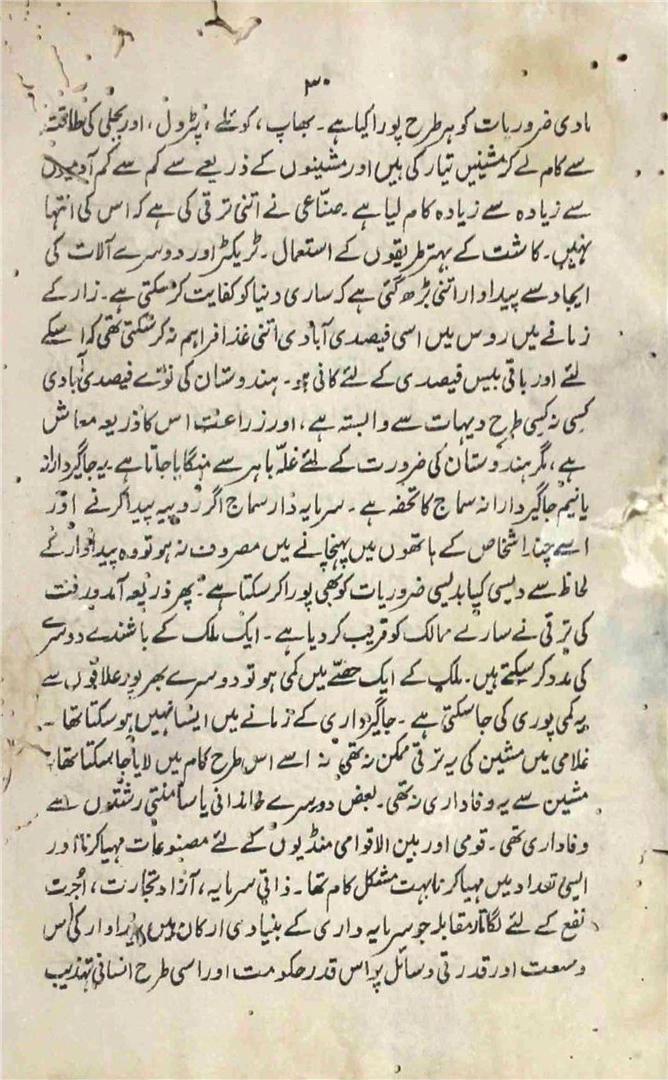 ۳۰
مادی ضروریات کو ہر طرح پورا کیا ہے۔ بھاپ، کوئلے، پٹرول، اور بجلی کی طاقت
سے کام لے کر مشینیں تیار کی ہیں اور مشینوں کے ذریعے سے کم سے کم آدمیوں
سے زیادہ سے زیادہ کام لیا ہے۔ صنّاعی نے اتنی ترقی کی ہے کہ اس کی انتہا
نہیں۔ کاشت کے بہتر طریقوں کے استعمال۔ ٹریکٹر اور دوسرے آلات کی
ایجاد سے پیداوار اتنی بڑھ گئی ہے کہ ساری دنیا کو کفایت کر سکتی ہے۔ زار کے
زمانے میں روس میں اسی فیصدی آبادی اتنی غذا فراہم نہ کر سکتی تھی کہ اسکے
لئے اور باقی بیس فیصدی کے لئے کافی ہو۔ ہندوستان کی نوّے فیصدی آبادی
کسی نہ کسی طرح دیہات سے وابستہ ہے، اور زراعت اس کا ذریعہ معاش
ہے، مگر ہندوستان کی ضرورت کے لئے غلّہ باہر سے منگایا جاتا ہے۔ یہ جاگیردارانہ
یا نیم جاگیردارانہ سماج کا تحفہ ہے۔ سرمایہ دار سماج اگر روپیہ پیدا کرنے اور
اسے چند اشخاص کے ہاتھوں میں پہنچانے میں مصروف نہ ہو تو وہ پیداوار کے
لحاظ سے دیسی کیا بدیسی ضروریات کو بھی پورا کر سکتا ہے۔ پھر ذریعہ آمدورفت
کی ترقی نے سارے ممالک کو قریب کر دیا ہے۔ ایک ملک کے باشندے دوسرے
کی مدد کر سکتے ہیں۔ ملک کے ایک حصّے میں کمی ہو تو دوسرے بھرپور علاقوں سے
یہ کمی پوری کی جا سکتی ہے۔ جاگیرداری کے زمانے میں ایسا نہیں ہو سکتا تھا۔
غلامی میں مشین کی یہ ترقی ممکن نہ تھی نہ اسے اس طرح کام میں لایا جا سکتا تھا۔
مشین سے یہ وفاداری نہ تھی۔ بعض دوسرے خاندانی یا سامنتی رشتوں سے
وفاداری تھی۔ قومی اور بین الاقوامی منڈیوں کے لئے مصنوعات مہیا کرنا اور
ایسی تعداد میں مہیا کرنا بہت مشکل کام تھا۔ ذاتی سرمایہ، آزاد تجارت، اُجرت
نفع کے لئے لگاتار مقابلہ جو سرمایہ داری کے بنیادی ارکان ہیں پیداوار کی اس
وسعت اور قدرتی وسائل پر اس قدر حکومت اور اسی طرح انسانی تہذیب